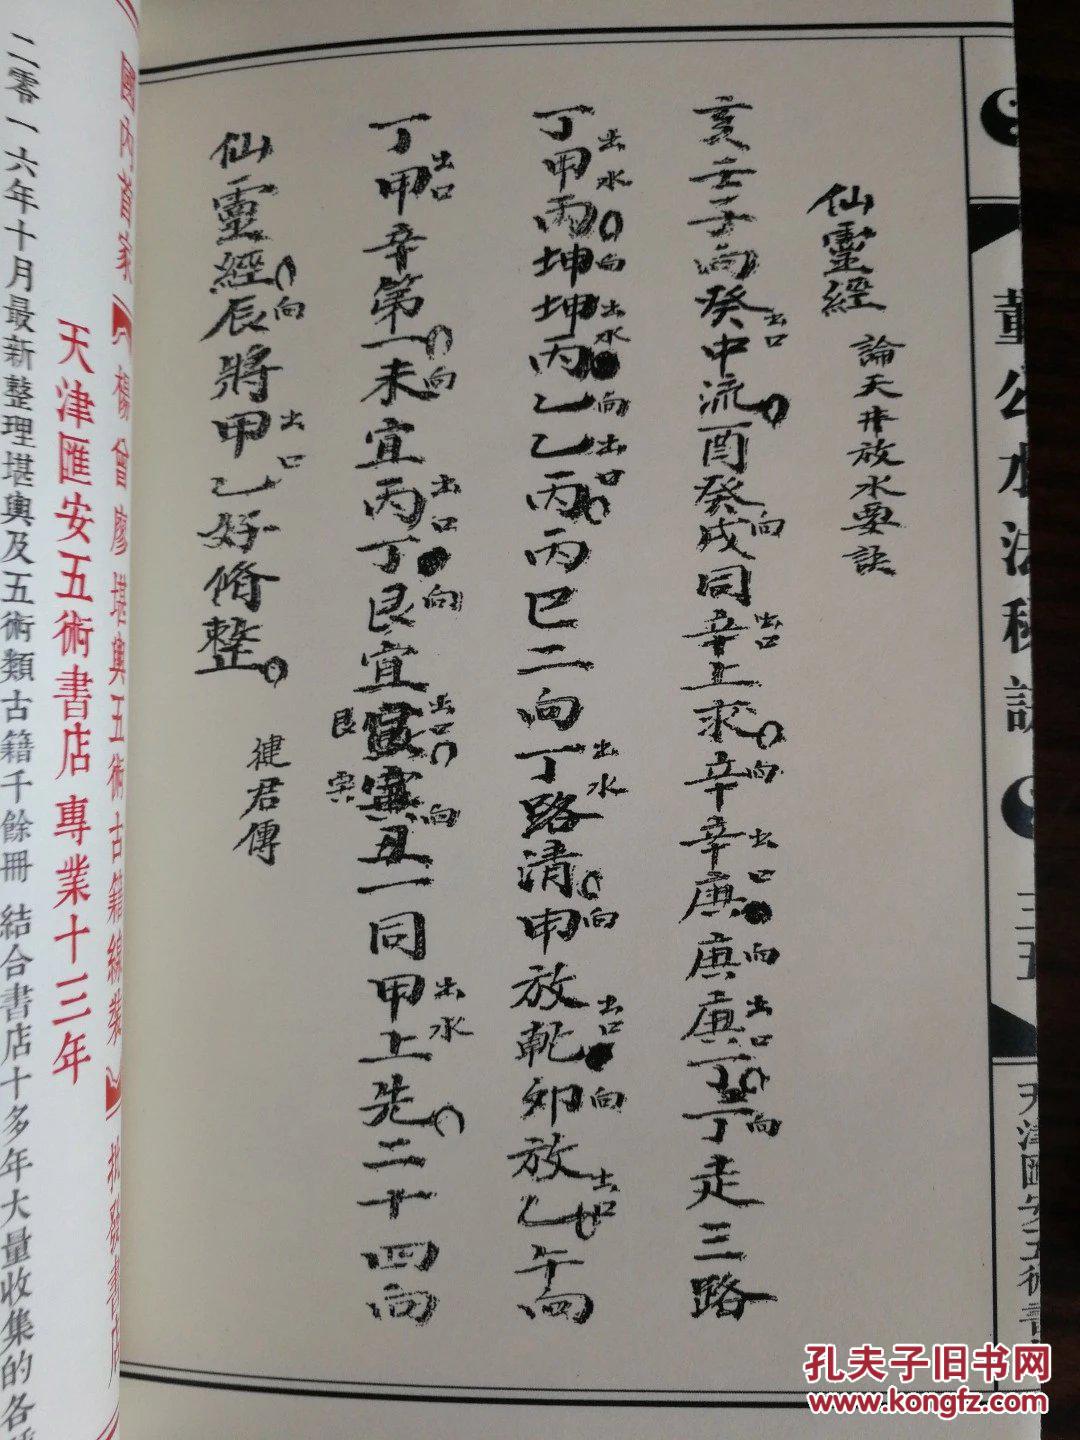 董公水法秘訣
三五
天津匯安五術書
仙靈經 論天井放水要訣
亥壬子向癸出口中流酉癸戌向同辛出口上求辛向辛出口庚庚向庚出口丁丁向走三路
丁甲出水丙坤向坤出水丙乙向乙出口丙丙巳二向丁出水路清申向放乾出口卯向放乙出口午向
丁甲出口辛第一未向宜丙出口丁艮向宜寅出口寅丑向一同甲出水上先二十四向
艮
寅
仙靈經辰向將甲出口乙好脩整
健君傳
國內首家【楊曾廖堪輿五術古籍線裝】批發書店
天津匯安五術書店 專業十三年
二零一六年十月最新整理堪輿及五術類古籍千餘冊 結合書店十多年大量收集的各種
孔夫子旧书网
www.kongfz.com